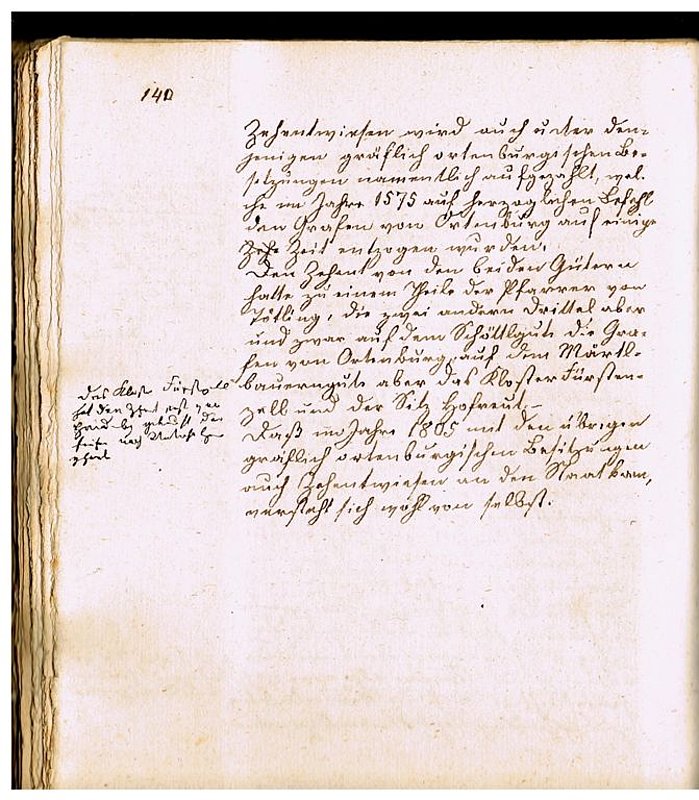 140
Zehentwiesen wird auch unter den-
jenigen gräflich ortenburgischen Be-
sitzungen namentlich aufgezählt, wel-
che im Jahre 1575 auf herzoglichen Befehl
den Grafen von Ortenburg auf einige
Zehe Zeit entzogen wurden.
Den Zehent von den beiden Gütern
hatte zu einem Theile der Pfarrer von
die zwei andern Drittel aber
und zwar auf dem Schöttlgute die Gra-
fen von Ortenburg, auf dem Märtl-
bauerngute aber das Kloster Fürsten-
zell und der Sitz Hofreut.
Daß im Jahre 1805 mit den übrigen
gräflich ortenburgischen Besitzungen
auch Zehentwiesen an den Staat kam,
versteht sich wohl von selbst.
das Kloster Fürstzell
hat den Zehent erst von
gekauft
nach